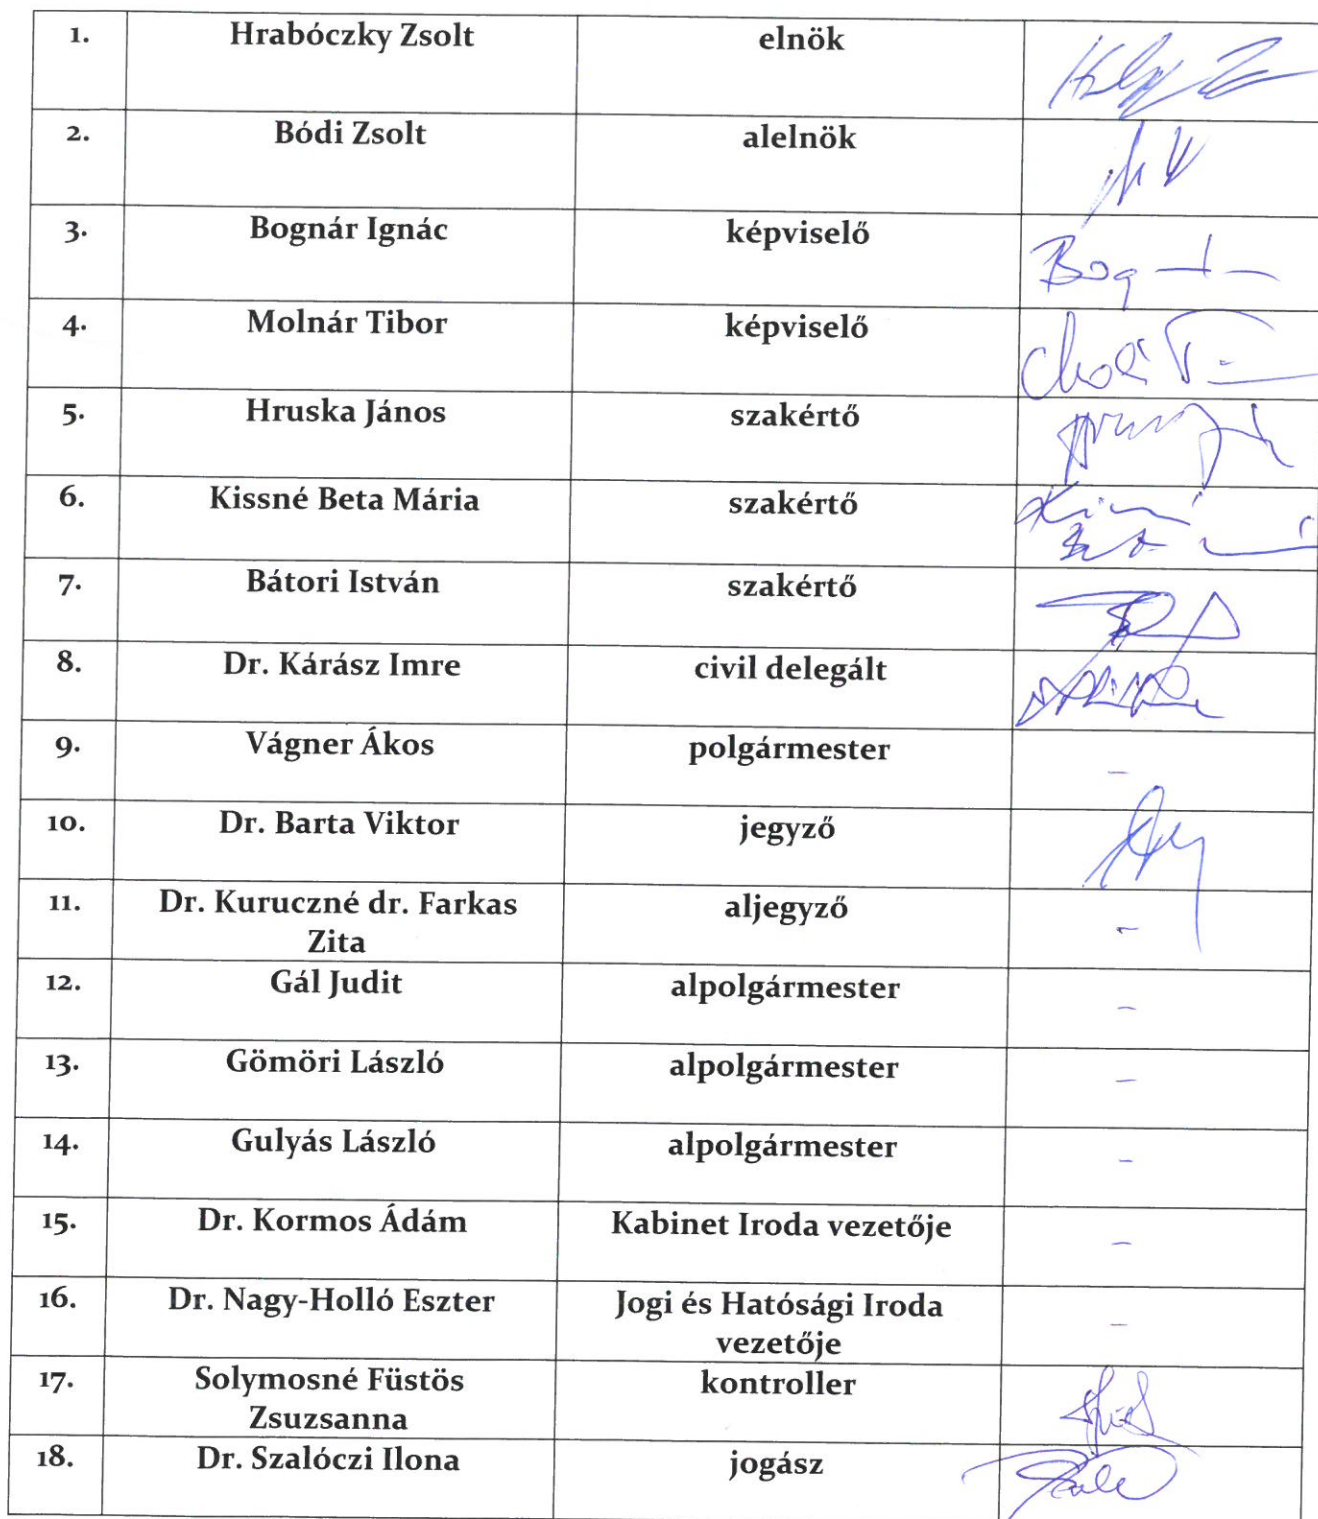 1. Hrabóczky Zsolt elnök
2. Bódi Zsolt alelnök
3. Bognár Ignác képviselő
4. Molnár Tibor képviselő
5. Hruska János szakértő
6. Kissné Beta Mária szakértő
7. Bátori István szakértő
8. Dr. Kárász Imre civil delegált
9. Vágner Ákos polgármester -
10. Dr. Barta Viktor jegyző
11. Dr. Kuruczné dr. Farkas aljegyző -
Zita
12. Gál Judit alpolgármester -
13. Gömöri László alpolgármester -
14. Gulyás László alpolgármester -
15. Dr. Kormos Ádám Kabinet Iroda vezetője -
16. Dr. Nagy-Holló Eszter Jogi és Hatósági Iroda -
vezetője
17. Solymosné Füstös kontroller
Zsuzsanna
18. Dr. Szalóczi Ilona jogász